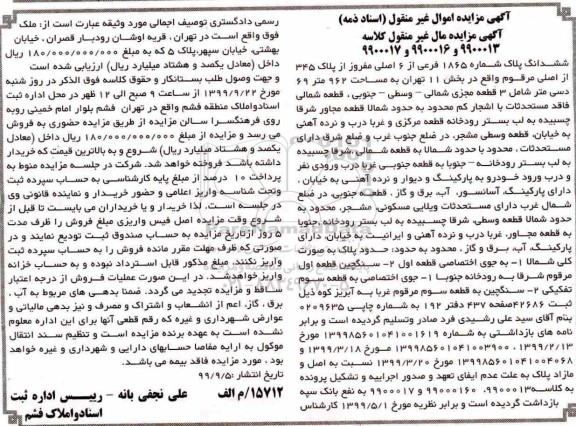 آگهی مزایده اموال غیر منقول (اسناد ذمه)
آگهی مزایده مال غیر منقول کلاسه
۹۹۰۰۰۱۳ و ۹۹۰۰۰۱۶ و ۹۹۰۰۰۱۷
ششدانگ پلاک شماره ۱۸۶۵ فرعی از ۶ اصلی مفروز از پلاک ۳۴۵
از اصلی مرقوم واقع در بخش ۱۱ تهران به مساحت ۹۶۲ متر ۶۹
دسی متر شامل ۳ قطعه مجزی شمالی - وسطی - جنوبی، قطعه شمالی
فاقد مستحدثات با اشجار کم محدود به حدود شمالا قطعه مجاور شرقا
چسبیده به لب بستر رودخانه قطعه مرکزی و غربا درب و نرده آهنی
به خیابان، قطعه وسطی مشجر، در ضلع جنوب غرب و ضلع شرق دارای
مستحدثات، محدود با حدود شمالا به قطعه شمالی، شرقا چسبیده
به لب بستر رودخانه - جنوبا به قطعه جنوبی غربا درب ورودی نفر
و درب ورود خودرو به پارکینگ و دیوار و نرده آهنی به خیابان،
دارای پارکینگ، آسانسور، آب، برق و گاز. قطعه جنوبی، در ضلع
شمال غرب دارای مستحدثات ویلایی مسکونی، مشجر، محدود به
حدود شمالا قطعه وسطی، شرقا چسبیده به لب بستر رودخانه، جنوبا
به قطعه مجاور، غربا درب و نرده آهنی و ایرانیت به خیابان، دارای
پارکینگ، آب، برق و گاز، محدود به حدود: حدود پلاک به صورت
کلی شمالا ۱- به جوی اختصاصی قطعه اول ۲- سنگچین قطعه اول
مرقوم شرقا به رودخانه جنوبا ۱- جوی اختصاصی به قطعه سوم
تفکیکی ۲- سنگچین به قطعه سوم مرقوم غربا به آبریز کوه ذیل
ثبت ۴۲۶۸۶ صفحه ۴۳۷ دفتر ۱۹۲ به شماره چاپی ۰۲۰۹۶۳۵
بنام آقای سید علی رشیدی فرد صادر وتسلیم گردیده است و برابر
نامه های بازداشتی به شماره ۱۳۹۹۸۵۶۰۱۰۴۱۰۰۱۶۱۹ مورخ
۱۳۹۹/۲/۱۳، ۱۳۹۹۸۵۶۰۱۰۴۱۰۰۳۹۰۱ مورخ ۱۳۹۹/۳/۱۸ و
۱۳۹۹۸۵۶۰۱۰۴۱۰۰۴۰۶۸ مورخ ۱۳۹۹/۳/۲۰ نسبت به اصل و
مازاد پلاک به علت عدم ایفای تعهد و صدور اجراییه و تشکیل پرونده
به کلاسه ۹۹۰۰۰۱۳، ۹۹۰۰۰۱۶ و ۹۹۰۰۰۱۷ به نفع بانک سپه
بازداشت گردیده است و برابر نظریه مورخ ۱۳۹۹/۵/۱ کارشناس
رسمی دادگستری توصیف اجمالی مورد وثیقه عبارت است از: ملک
فوق واقع است در تهران، قریه اوشان رودبار قصران، خیابان
بهشتی، خیابان سپهر، پلاک ۵ که به مبلغ ۱۸۰/۰۰۰/۰۰۰/۰۰۰ ریال
داخل (معادل یکصد و هشتاد میلیارد ریال) ارزیابی شده است
و جهت وصول طلب بستانکار و حقوق کلاسه فوق الذکر در روز شنبه
مورخ ۱۳۹۹/۹/۲۲ از ساعت ۹ صبح الی ۱۲ ظهر در محل اداره ثبت
اسنادواملاک منطقه فشم واقع در تهران فشم بلوار امام خمینی روبه
روی فرهنگسرا سالن مزایده از طریق مزایده حضوری به فروش
می رسد و مزایده از مبلغ ۱۸۰/۰۰۰/۰۰۰/۰۰۰ ریال داخل (معادل
یکصد و هشتاد میلیارد ریال) شروع و به بالاترین قیمت که خریدار
داشته باشد فروخته خواهد شد. شرکت در جلسه مزایده منوط به
پرداخت ۱۰ درصد از مبلغ پایه کارشناسی به حساب سپرده ثبت
وتحت شناسه واریز اعلامی و حضور خریدار و نماینده قانونی وی
در جلسه است. لذا خریدار و یا خریداران می بایست تا قبل از
شروع وقت مزایده اصل فیش واریزی مبلغ فروش را ظرف مدت
۵ روز ازتاریخ مزایده به حساب صندوق ثبت تودیع نمایند و در
صورتی که ظرف مهلت مقرر مانده فروش را به حساب سپرده ثبت
واریز نکنند، مبلغ مذکور قابل استرداد نبوده و به حساب خزانه
واریز خواهدشد. در این صورت عملیات فروش از درجه اعتبار
ساقط و مزایده تجدید می گردد. ضمنا بدهی های مربوط به آب،
برق، گاز، اعم از انشعاب و اشتراک و مصرف و نیز بدهی مالیاتی و
عوارض شهرداری و غیره که رقم قطعی آنها برای این اداره معلوم
نشده است به عهده برنده مزایده است و تنظیم سند انتقال
موکول به ارایه مفاصا حسابهای دارایی و شهرداری و غیره خواهد
بود. مورد مزایده فاقد بیمه می باشد.
تاریخ انتشار: ۹۹/۹/۵
۱۵۷۱۲/م الف علی نجفی بانه - رییس اداره ثبت
اسنادواملاک فشم